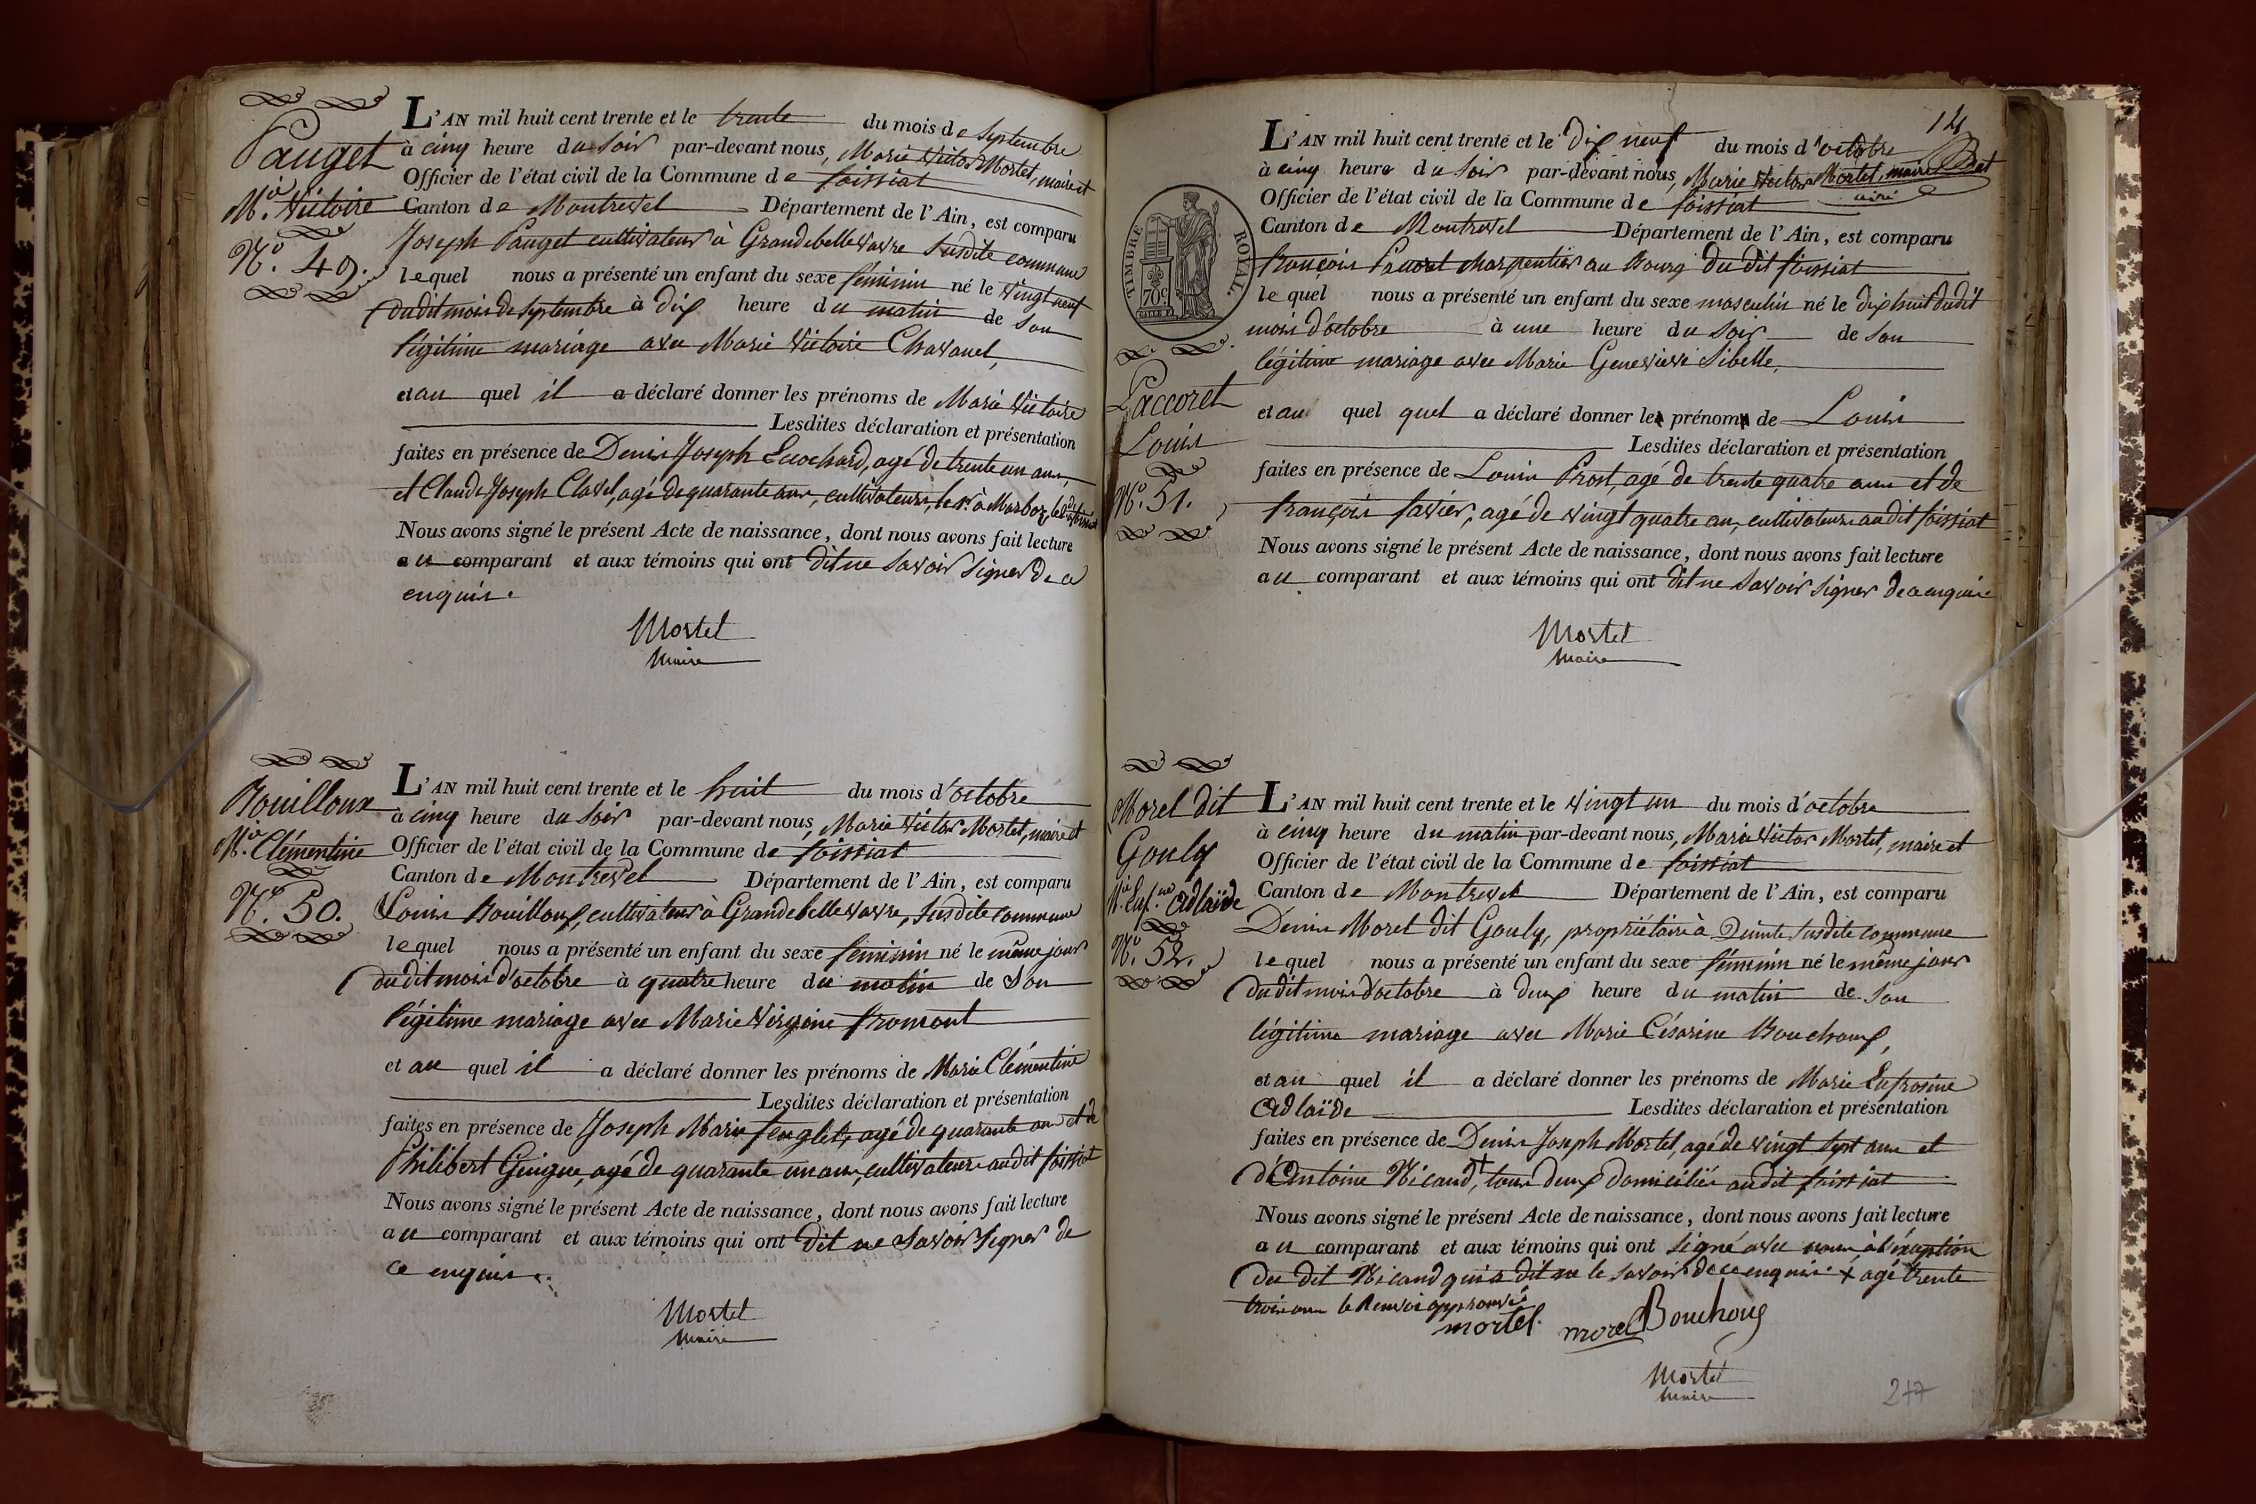 Pauget
Mie. Victoire
N.o 49.
L'AN mil huit cent trente et le trente du mois de Septembre
à cinq heure du soir par-devant nous, Marie Victor Mortel, maire et
Officier de l'état civil de la Commune de foissiat
Canton de Montrevel Département de l'Ain, est comparu
Joseph Pauget cultivateur à Grandebellevavre susdite commune
lequel nous a présenté un enfant du sexe féminin né le vingt neuf
du dit mois de septembre à dix heure du matin de son
légitime mariage avec Marie Victoire Chavanel,
et au quel il a déclaré donner les prénoms de Marie Victoire
Lesdites déclaration et présentation
faites en présence de Denis Joseph Euochard, agé de trente un ans,
et Claude Joseph Clavel, agé de quarante ans, cultivateurs, le 1.er à Marboz, le 2.d à foissiat
Nous avons signé le présent Acte de naissance, dont nous avons fait lecture
au comparant et aux témoins qui ont dit ne savoir signer de ce
enquis.
Mortel
Maire
Bouilloux
Mie. Clémentine
N.o 50.
L'AN mil huit cent trente et le huit du mois d'octobre
à cinq heure du soir par-devant nous, Marie Victor Mortel, maire et
Officier de l'état civil de la Commune de foissiat
Canton de Montrevel Département de l'Ain, est comparu
Louis Bouilloux, cultivateur à Grandebellevavre, susdite commune
lequel nous a présenté un enfant du sexe féminin né le même jour
du dit mois d'octobre à quatre heure du matin de son
légitime mariage avec Marie Virginie fromont
et au quel il a déclaré donner les prénoms de Marie Clémentine
Lesdites déclaration et présentation
faites en présence de Joseph Marie fenglet, agé de quarante ans et de
Philibert Guigue, agé de quarante un ans, cultivateurs audit foissiat
Nous avons signé le présent Acte de naissance, dont nous avons fait lecture
au comparant et aux témoins qui ont dit ne savoir signer de
ce enquis.
Mortel
Maire
14
TIMBRE ROYAL.
70c
Paccoret
Louis
N.o 51.
L'AN mil huit cent trente et le dix neuf du mois d'octobre
à cinq heure du soir par-devant nous, Marie Victor Mortel, maire et
Officier de l'état civil de la Commune de foissiat
Canton de Montrevel Département de l'Ain, est comparu
françois charpentier au Bourg du dit foissiat
lequel nous a présenté un enfant du sexe masculin né le dix huit du dit
mois d'octobre à une heure du soir de son
légitime mariage avec Marie Genevieve Sibelle,
et au quel quel a déclaré donner les prénoms de Louis
Lesdites déclaration et présentation
faites en présence de Louis Prost, agé de trente quatre ans et de
françois favier, agé de vingt quatre ans, cultivateurs audit foissiat
Nous avons signé le présent Acte de naissance, dont nous avons fait lecture
au comparant et aux témoins qui ont dit ne savoir signer de ce enquis
Mortel
Maire
Morel dit
Gouly
Mie. Eufne. Adlaïde
N.o 52.
L'AN mil huit cent trente et le vingt un du mois d'octobre
à cinq heure du matin par-devant nous, Marie Victor Mortel, maire et
Officier de l'état civil de la Commune de foissiat
Canton de Montrevel Département de l'Ain, est comparu
Denis Morel dit Gouly, propriétaire à susdite commune
lequel nous a présenté un enfant du sexe féminin né le même jour
du dit mois d'octobre à deux heure du matin de son
légitime mariage avec Marie Césarine Bouchoux,
et au quel il a déclaré donner les prénoms de Marie Eufrosine
Adlaïde Lesdites déclaration et présentation
faites en présence de Denis Joseph Mortel, agé de vingt sept ans et
d'Antoine Nicaud,+ tous deux domiciliés audit foissiat
Nous avons signé le présent Acte de naissance, dont nous avons fait lecture
au comparant et aux témoins qui ont signé avec nous, à l'éxception
du dit Nicaud qui a dit ne le savoir de ce enquis. + agé trente
trois ans le Renvoi approuvé
mortel. morel Bouchoux
Mortel
Maire
277